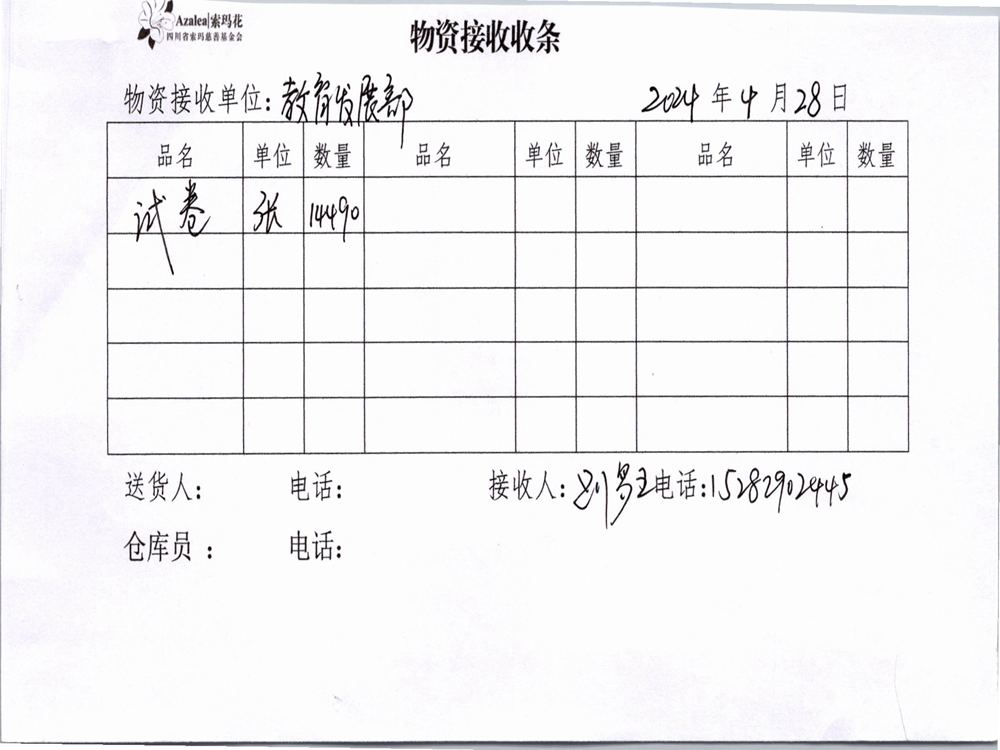 Azalea|索玛花
四川省索玛慈善基金会
物资接收收条
物资接收单位：教育发展部 2024 年 4 月 28 日
品名 单位 数量 品名 单位 数量 品名 单位 数量
试卷 张 14490
送货人： 电话： 接收人： 电话：15282902445
仓库员 ： 电话：